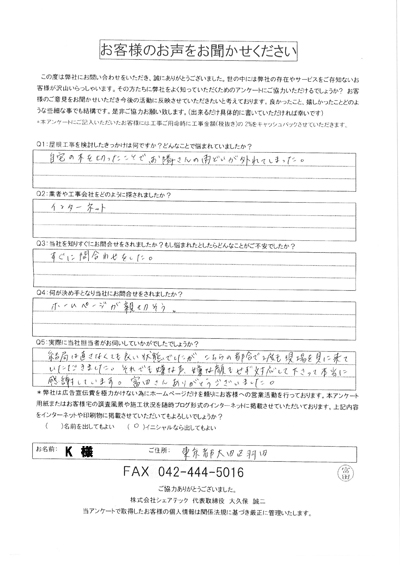 お客様のお声をお聞かせください
この度は弊社にお問い合わせをいただき、誠にありがとうございました。世の中には弊社の存在やサービスをご存知ないお
客様が沢山いらっしゃいます。その方たちに弊社をよく知っていただくためのアンケートにご協力いただけるでしょうか？ お客
様のご意見をお聞かせいただき今後の活動に反映させていただきたいと考えております。良かったこと、嬉しかったことどのよ
うな些細な事でも結構です。是非ご協力お願い致します。（出来るだけ具体的に書いていただければ幸いです）
*本アンケートにご記入いただいたお客様には工事ご用命時に工事金額(税抜き)の2%をキャッシュバックさせていただきます。
Q1:屋根工事を検討したきっかけは何ですか？どんなことで悩まれていましたか？
自宅の木を切ったことでお隣さんの雨どいが外れてしまった。
Q2:業者や工事会社をどのように探されましたか？
インターネット
Q3:当社を知りすぐにお問合せをされましたか？もし悩まれたとしたらどんなことがご不安でしたか？
すぐに問合わせをした。
Q4:何が決め手となり当社にお問合せをされましたか？
ホームページが親切そう。
Q5:実際に当社担当者がお伺いしていかがでしたでしょうか？
結局は直さなくても良い状態でしたが、こちらの都合で2度も現場を見に来て
いただきました。それでも嫌な顔せず対応して下さって本当に
感謝しています。富田さんありがとうございました。
*弊社は広告宣伝費を極力かけない為にホームページだけを頼りにお客様への営業活動を行っております。本アンケート
用紙またはお客様宅の調査風景や施工状況を随時ブログ形式のインターネットに掲載させていただいております。上記内容
をインターネットや印刷物に掲載させていただいてもよろしいでしょうか？
（ ）名前を出してもよい （○）イニシャルなら出してもよい
お名前: K 様 ご住所: 東京都大田区羽田
FAX 042-444-5016
ご協力ありがとうございました。
株式会社シェアテック 代表取締役 大久保 誠二
当アンケートで取得したお客様の個人情報は関係法規に基づき厳正に管理いたします。